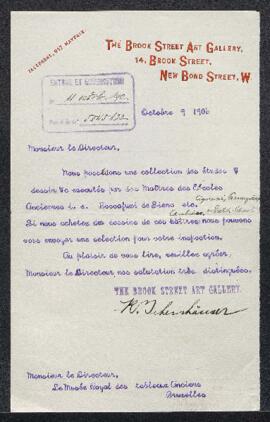 TELEPHONE, 937 MAYFAIR.
THE BROOK STREET ART GALLERY,
14, BROOK STREET,
NEW BOND STREET, W.
Octobre 9 1906
Monsieur le Directeur,
Nous possédons une collection des études &
dessins exécutés par les Maîtres des Ecoles
Anciennes i. e.
Si vous achetez des dessins de ces maîtres nous pouvons
vous envoyer une sélection pour votre inspection.
Au plaisir de vous lire, veuillez agréer,
Monsieur le Directeur, nos salutations très distinguées.
THE BROOK STREET ART GALLERY.
Monsieur le Directeur,
Le Musée Royal des tableaux Anciens
Bruxelles